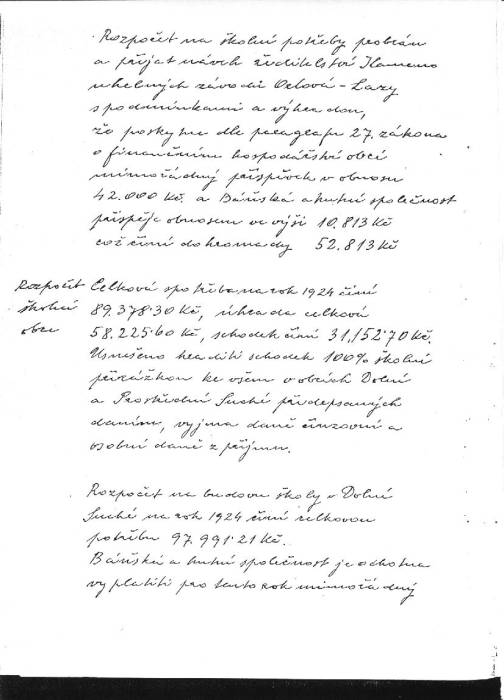 Rozpočet na školní potřeby probrán
a přijat návrh ředitelství Kameno
uhelných závodů Orlová-Lazy
s podmínkami a výhradou,
že poskytne dle paragrafu 27. zákona
o finančním hospodářství obcí
mimořádný příspěvek v obnosu
42.000 Kč. a Báňská a hutní společnost
přispěje obnosem ve výši 10.813 Kč
což činí dohromady 52.813 Kč
Rozpočet
školní
obce
Celková spotřeba na rok 1924 činí
89.378·30 Kč, úhrada celková
58.225·60 Kč, schodek činí 31,152·70 Kč.
Usnešeno hraditi schodek 100% školní
přirážkou ke všem v obcích Dolní
a Prostřední Suché předepsaných
daním, vyjma daně činžovní a
osobní daně z příjmu.
Rozpočet na budovu školy v Dolní
Suché na rok 1924 činí celkovou
potřebu 97.991·21 Kč.
Báňská a hutní společnost je ochotna
vyplatiti pro tento rok mimořádný